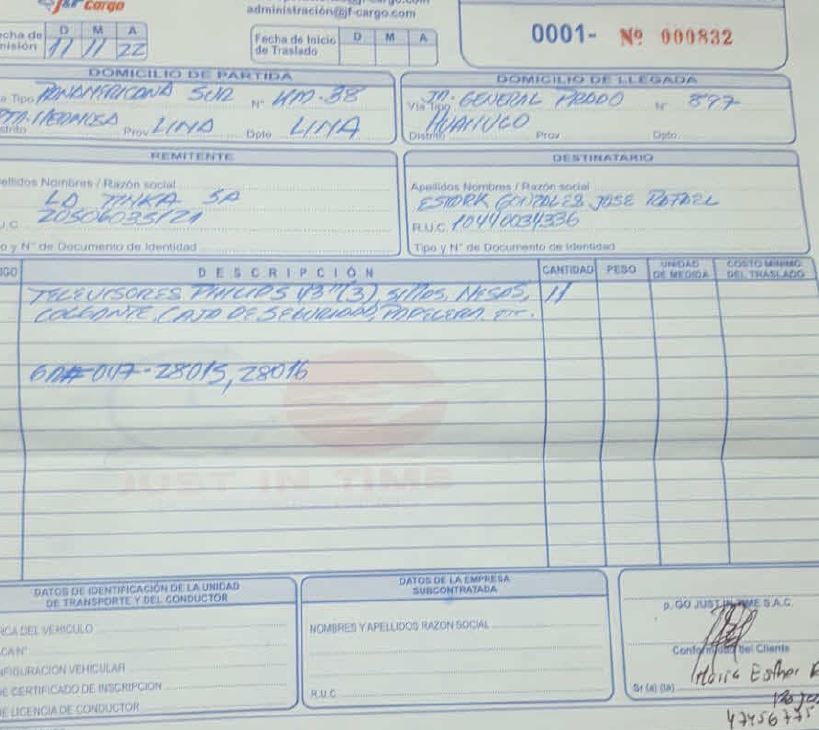 J&F Cargo
administración@jf-cargo.com
D M A
11 11 22
Fecha de Inicio de Traslado D M A
0001- Nº 000832
DOMICILIO DE PARTIDA
PANAMERICANA SUR Nº KM. 38
Prov LIMA Dpto LIMA
DOMICILIO DE LLEGADA
Vía Tipo JR. GENERAL PRADO Nº 897
HUANUCO
Distrito Prov Dpto.
REMITENTE
Nombres / Razón social
LA TINKA SA
20506035121
Nº de Documento de Identidad
DESTINATARIO
Apellidos Nombres / Razón social
GONZALES JOSE RAFAEL
R.U.C. 10440034336
Tipo y Nº de Documento de Identidad
DESCRIPCIÓN CANTIDAD PESO UNIDAD DE MEDIDA COSTO MINIMO DEL TRASLADO
TELEVISORES PHILIPS 43" (3), SILLAS, MESAS, 11
COLGANTE, CAJA DE SEGURIDAD, PAPELERA, etc.
047-28015, 28016
JUST IN TIME
DATOS DE IDENTIFICACIÓN DE LA UNIDAD
DE TRANSPORTE Y DEL CONDUCTOR
DEL VEHICULO
VEHICULAR
DE CERTIFICADO DE INSCRIPCION
DE LICENCIA DE CONDUCTOR
DATOS DE LA EMPRESA
SUBCONTRATADA
NOMBRES Y APELLIDOS RAZON SOCIAL
R.U.C
p. GO JUST IN TIME S.A.C.
Conformidad del Cliente
Sr (a) (ta)
Esther
47456775